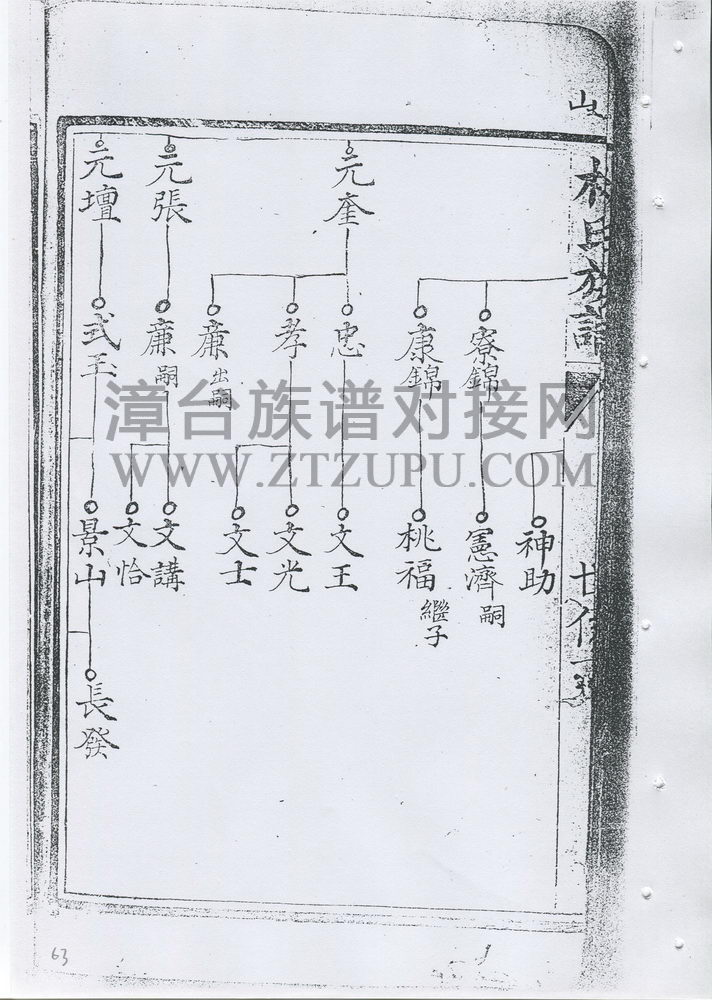 林氏族譜
神助
寮錦
憲濟 嗣
康錦
桃福 繼子
元奎
忠
文王
孝
文光
文士
廉 出嗣
元張
廉 嗣
文講
文恰
元壇
式玉
景山
長發
漳台族谱对接网
WWW.ZTZUPU.COM
63